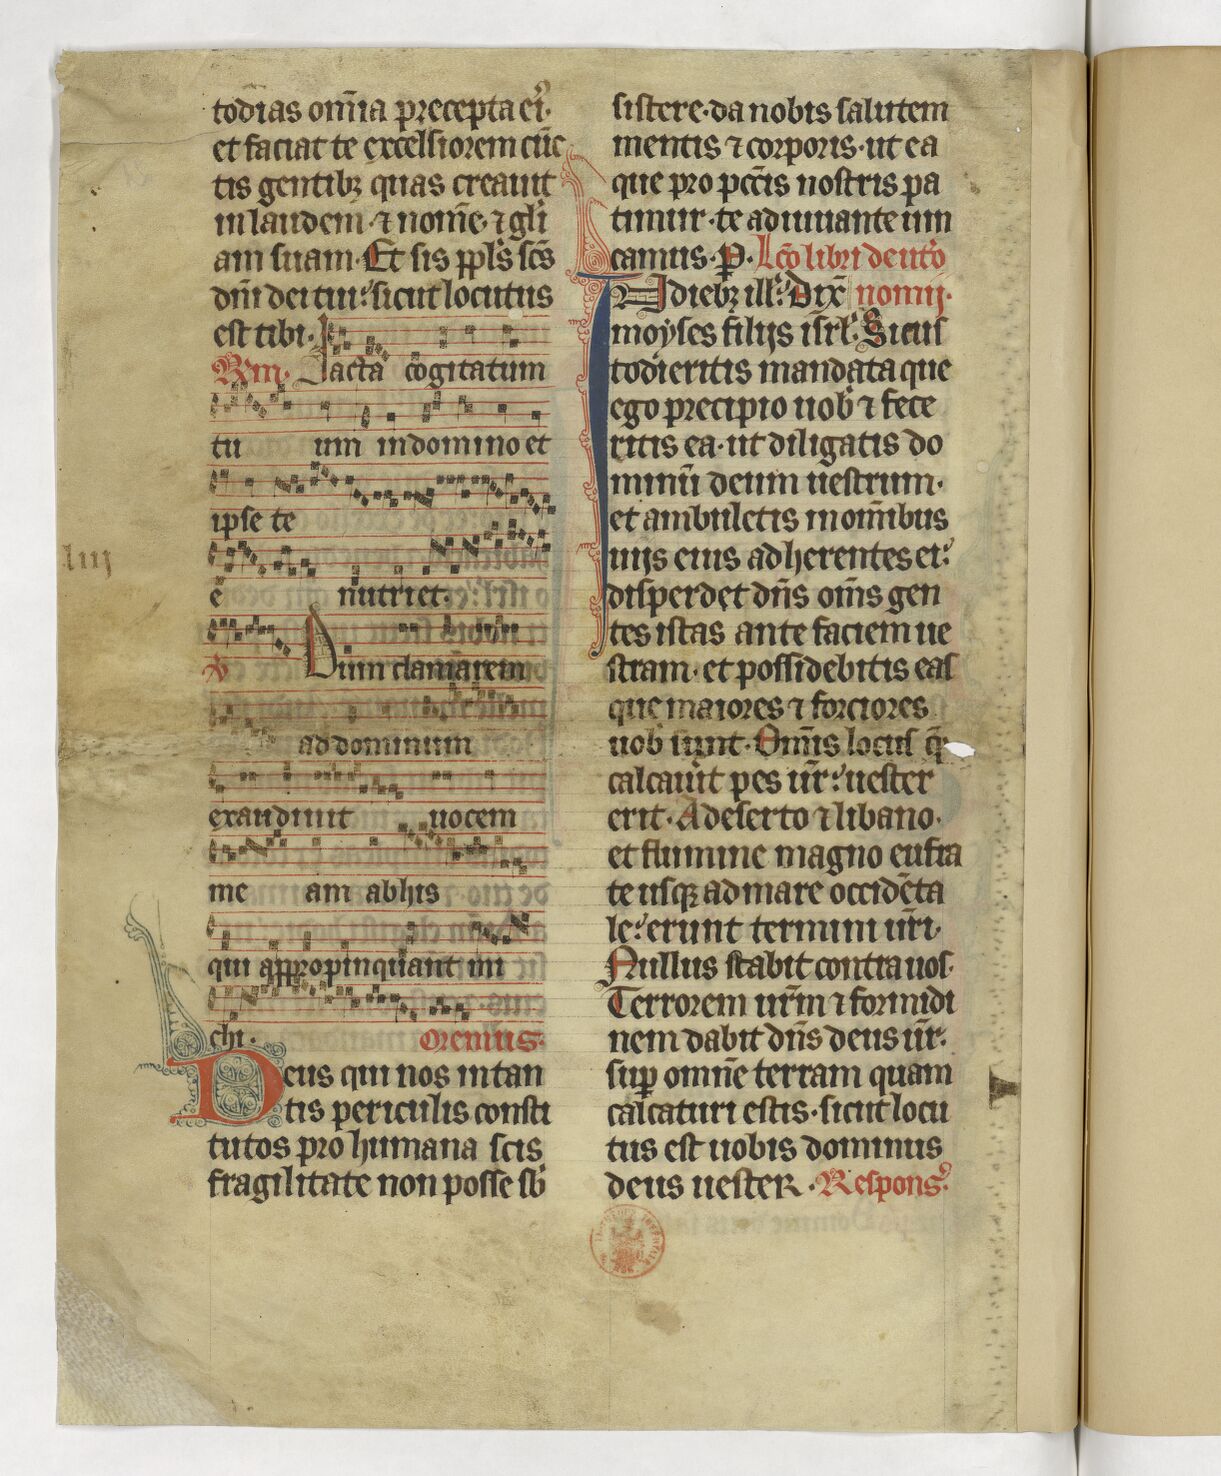 todias om̄ia precepta eiꝰ.
et faciat te excelsiorem cūc
tis gentibꝫ quas creauit
in laudem ⁊ nom̄e ⁊ gl'i
am suam. Et sis ppl's sc̄s
dn̄i dei tui: sicut locutus
est tibi.
Jacta cogitatum
tu um in domino et
ipse te
e nutriet.
Dum clamarem
ad dominum
exaudiuit uocem
me am ab his
qui appropinquant mi
chi. Oremus.
Deus qui nos in tan
tis periculis consti
tutos pro humana scis
fragilitate non posse sb'
liij
sistere. da nobis salutem
mentis ⁊ corporis. ut ea
que pro pcc̄is nostris pa
timur. te adiuuante uin
camus. P. Lc̄o libri deut'o
In diebꝫ ill': Dix̄ nomij.
moyses filijs isrl'. Si cus
todieritis mandata que
ego precipio uob' ⁊ fece
ritis ea. ut diligatis do
minū deum uestrum.
et ambuletis in om̄ibus
uijs eius adherentes ei:
disperdet dn̄s om̄s gen
tes istas ante faciem ue
stram. et possidebitis eas
que maiores ⁊ forciores
uob' sunt. Om̄is locus q̄
calcau'it pes ur̄: uester
erit. A deserto ⁊ libano.
et flumine magno eufra
te usqꝫ ad mare occidēta
le: erunt termini ur̄i.
Nullus stabit contra uos.
Terrorem ur̄m ⁊ formidi
nem dabit dn̄s deus ur̄.
suꝑ omn̄e terram quam
calcaturi estis. sicut locu
tus est uobis dominus
deus uester. Respons'.